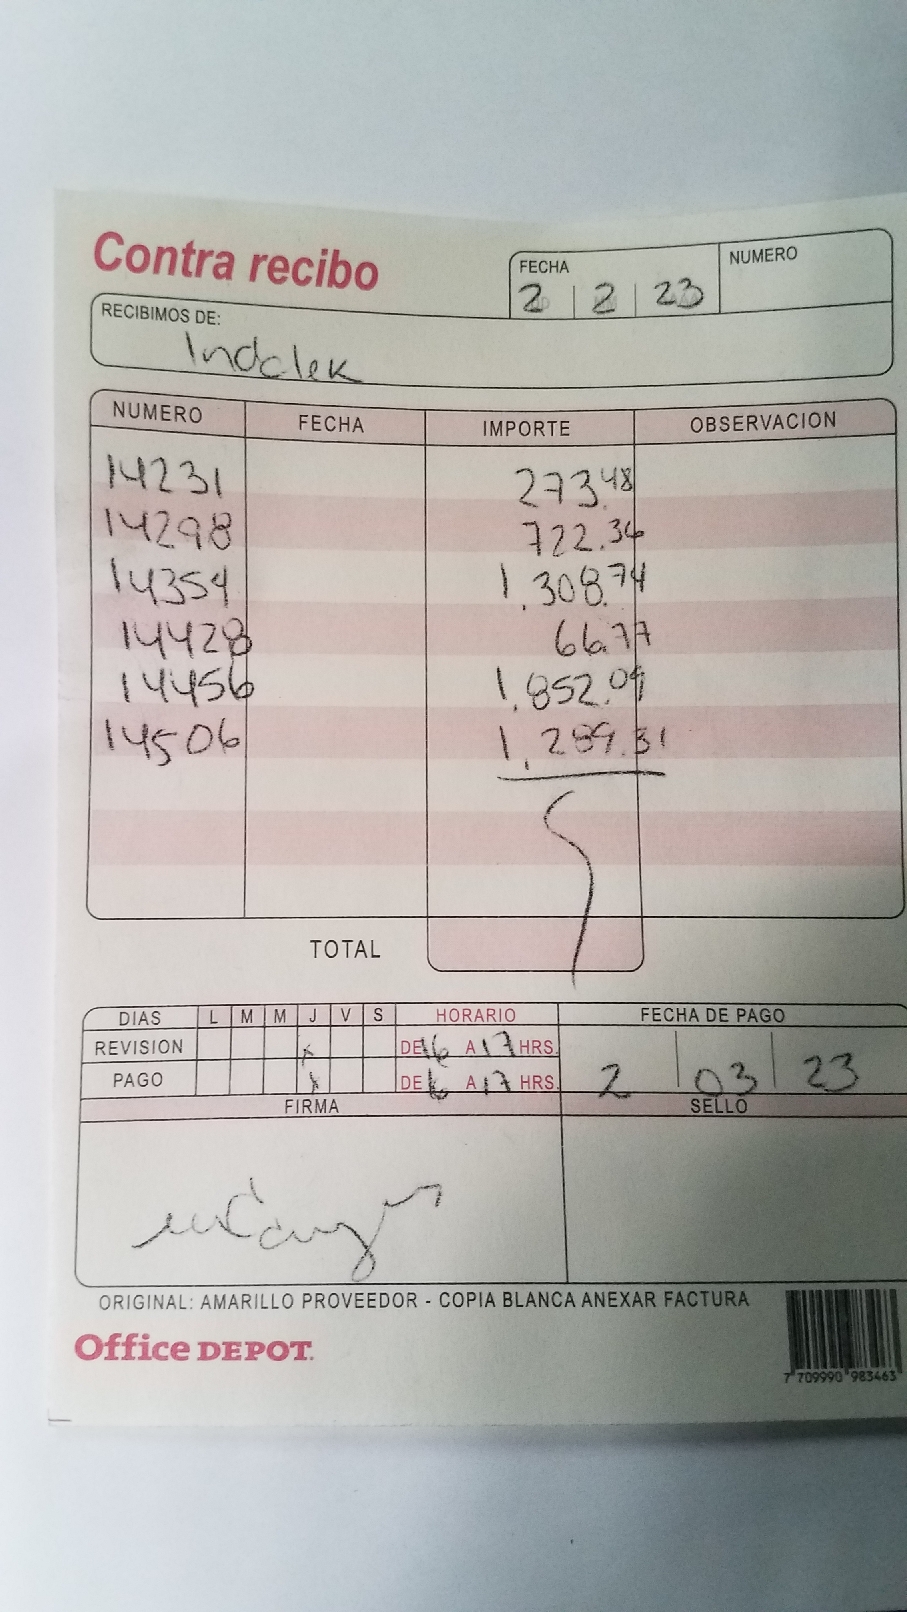 Contra recibo
FECHA
2 2 23
NUMERO
RECIBIMOS DE:
Indclek
NUMERO FECHA IMPORTE OBSERVACION
14231 273.48
14298 722.36
14354 1,308.74
14428 66.77
14456 1,852.09
14506 1,289.31
TOTAL
DIAS L M M J V S HORARIO FECHA DE PAGO
REVISION x DE 16 A 17 HRS.
PAGO x DE 16 A 17 HRS. 2 03 23
FIRMA SELLO
ORIGINAL: AMARILLO PROVEEDOR - COPIA BLANCA ANEXAR FACTURA
Office DEPOT.
7 709990 983463